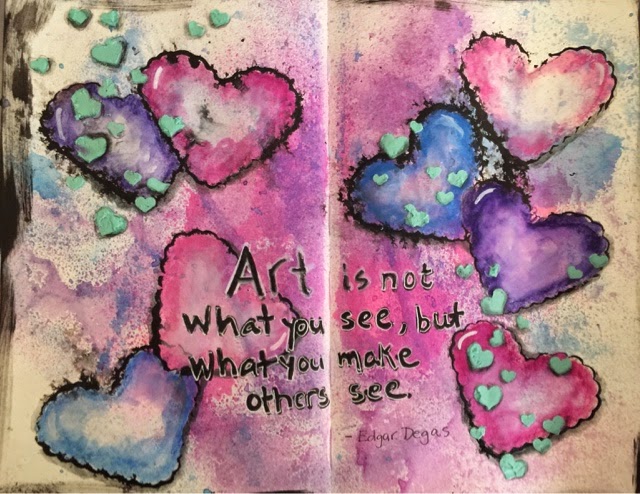 Art is not
what you see, but
what you make
others see.
- Edgar Degas